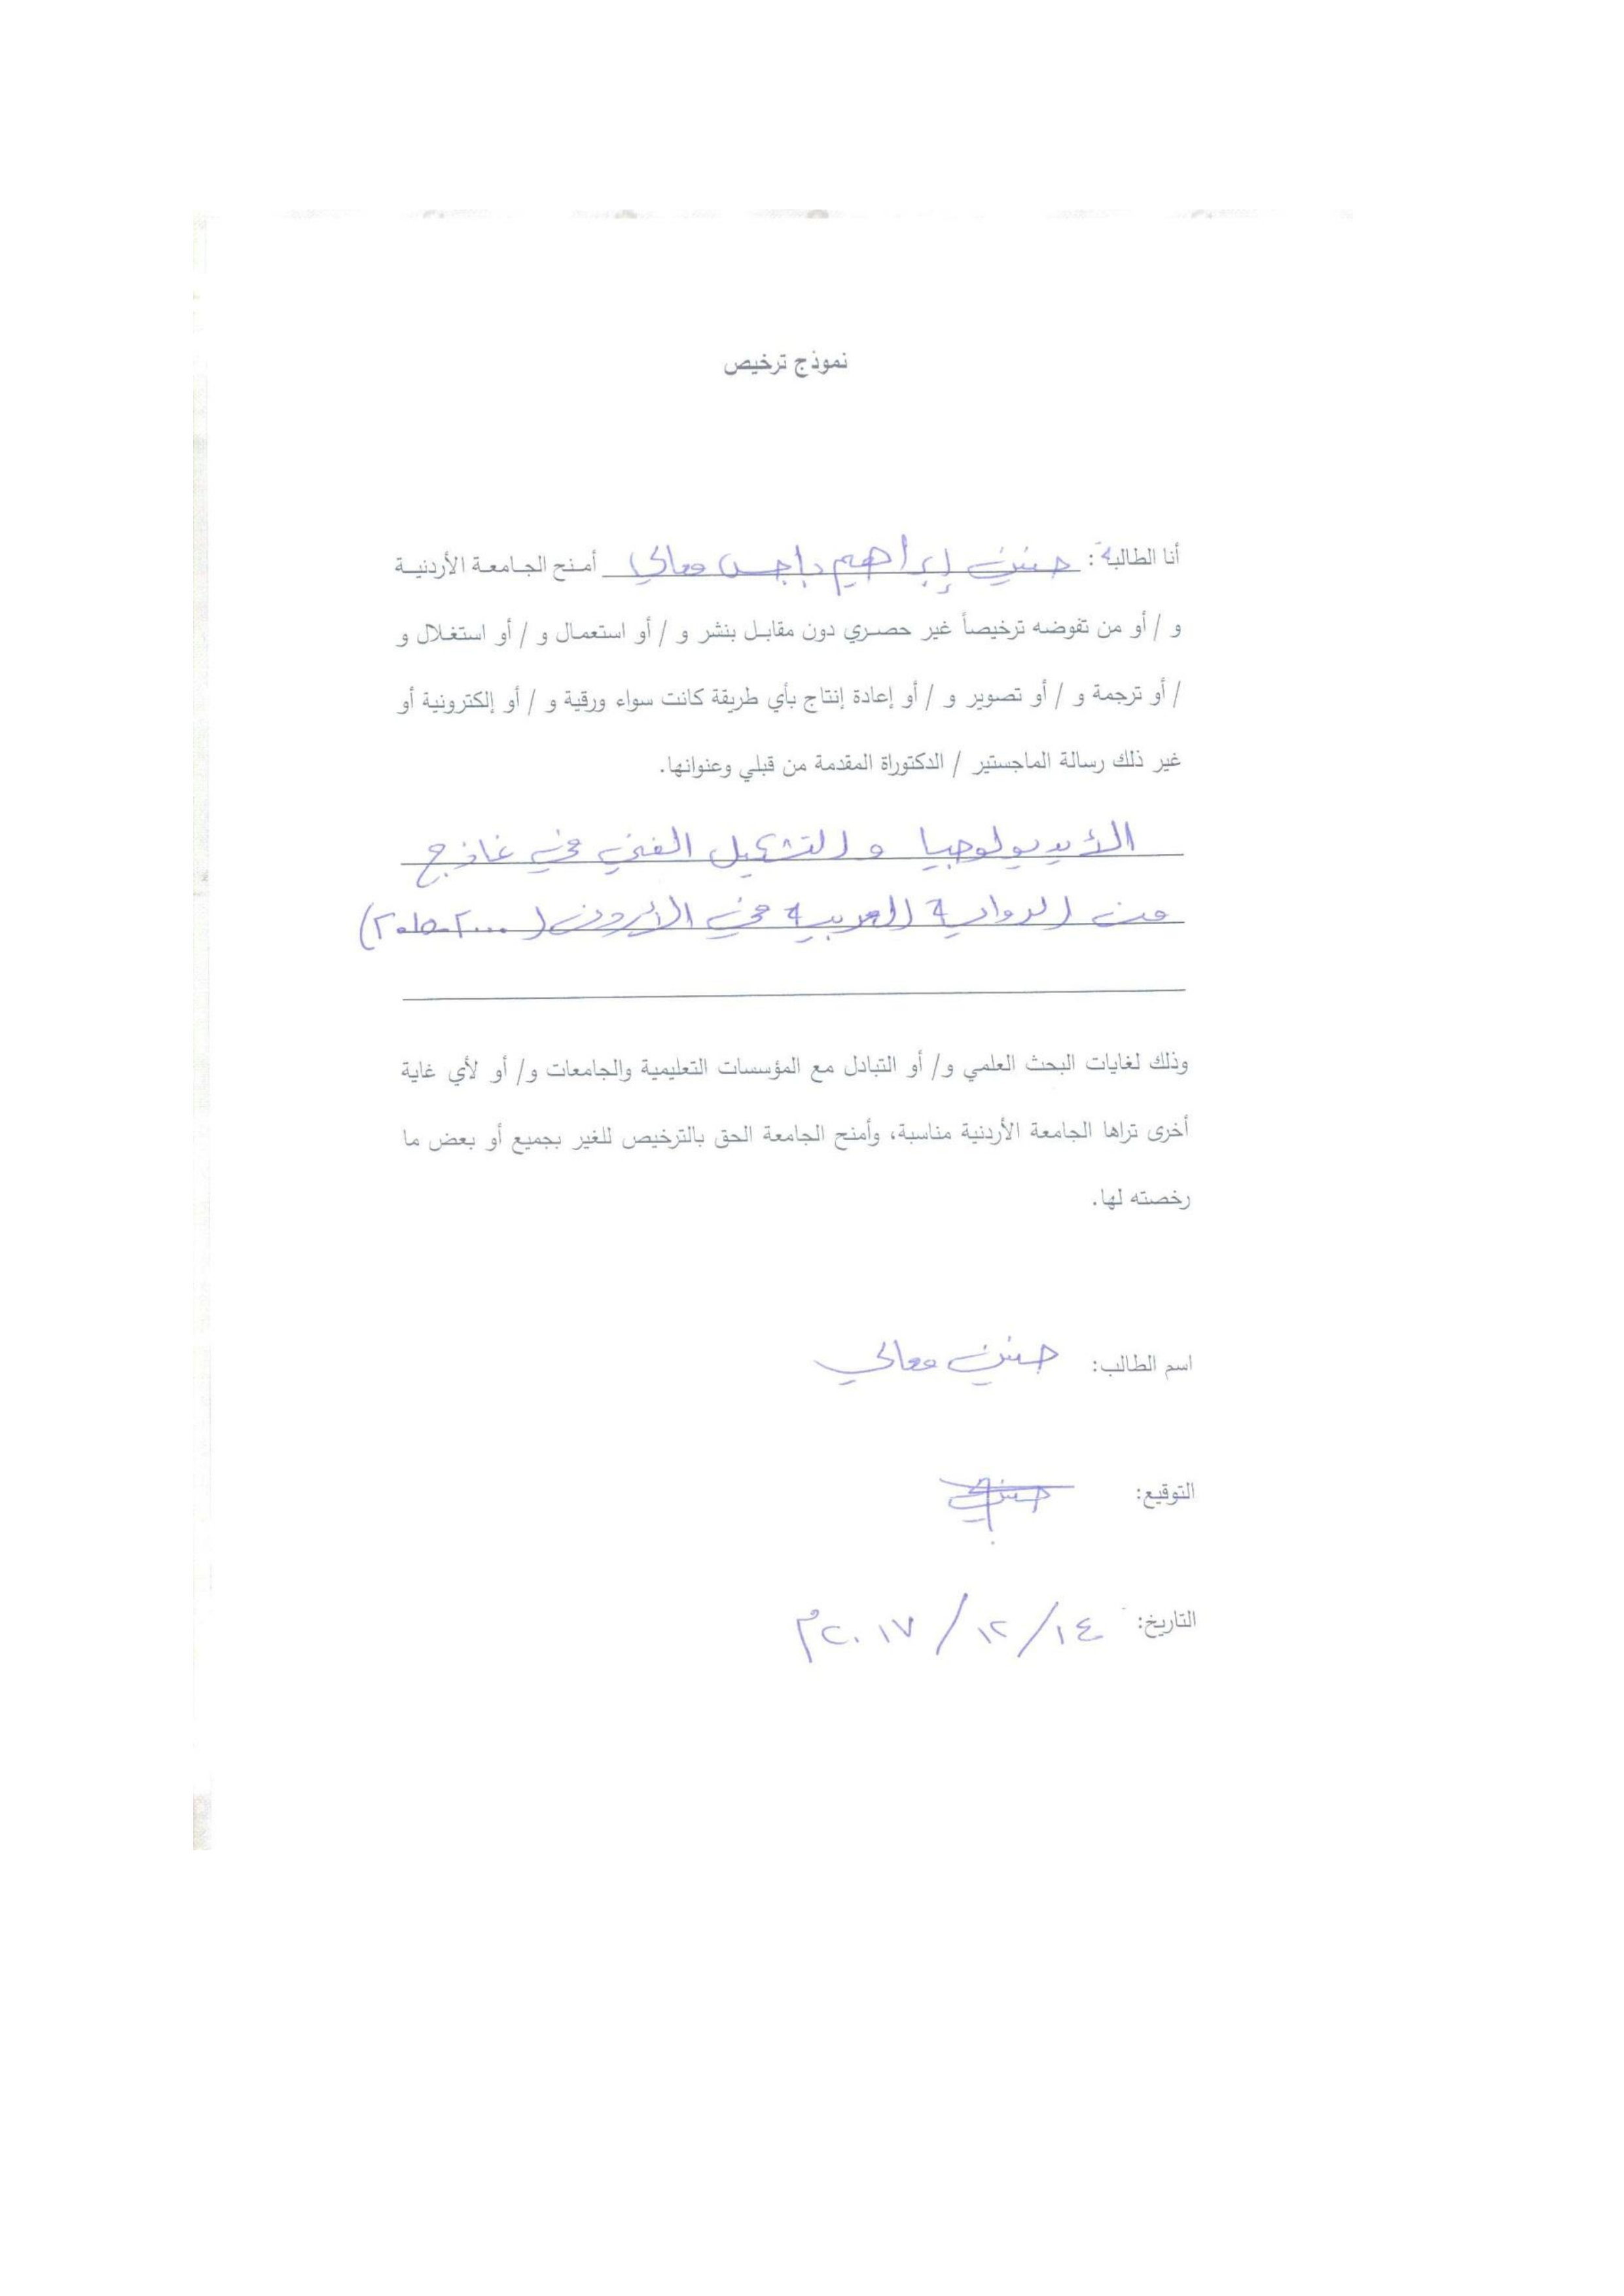 نموذج ترخيص
أنا الطالبة: حنين إبراهيم باجس معالي أمنح الجامعة الأردنية
و / أو من تفوضه ترخيصاً غير حصري دون مقابل بنشر و / أو استعمال و / أو استغلال و
/ أو ترجمة و / أو تصوير و / أو إعادة إنتاج بأي طريقة كانت سواء ورقية و / أو إلكترونية أو
غير ذلك رسالة الماجستير / الدكتوراة المقدمة من قبلي وعنوانها.
الأيديولوجيا والتشكيل الفني في نماذج
من الرواية العربية في الأردن (٢٠٠٠-٢٠١٥)
وذلك لغايات البحث العلمي و/ أو التبادل مع المؤسسات التعليمية والجامعات و/ أو لأي غاية
أخرى تراها الجامعة الأردنية مناسبة، وأمنح الجامعة الحق بالترخيص للغير بجميع أو بعض ما
رخصته لها.
اسم الطالب: حنين معالي
التوقيع: حنين
التاريخ: ١٤/ ١٢/ ٢٠١٧م